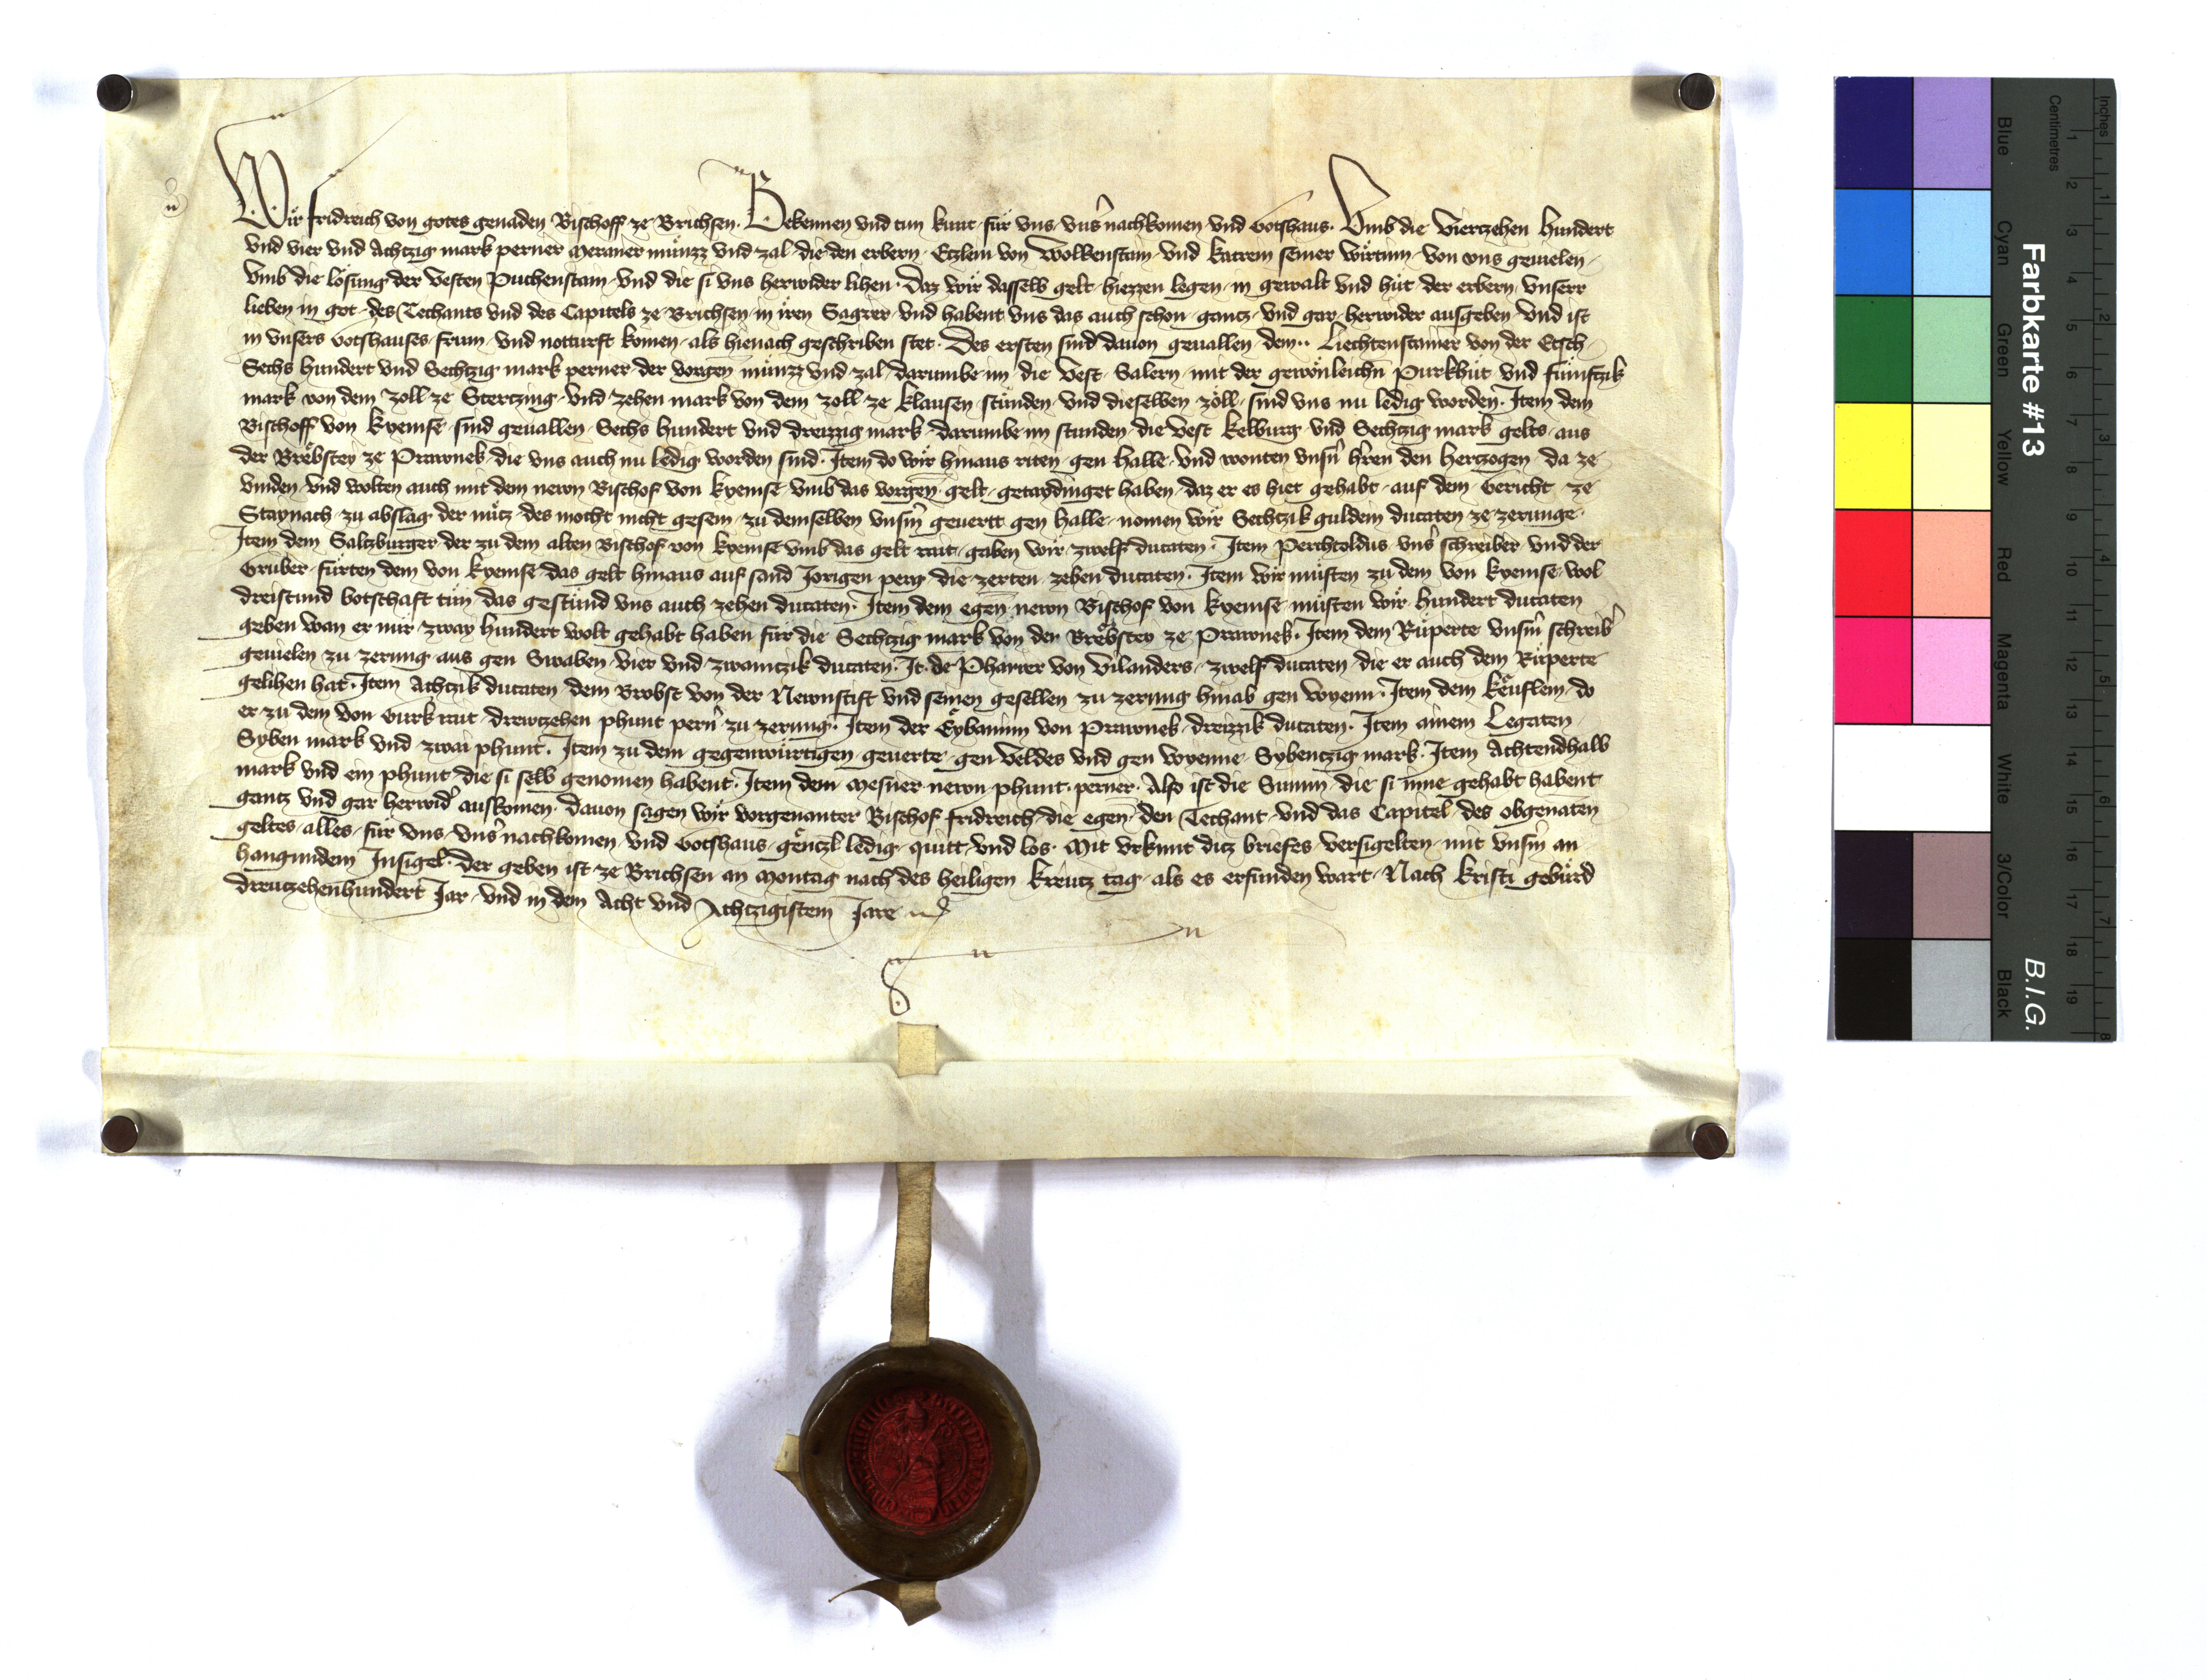 Wir fridreich von gotes genaden Bischoff ze Brichsen. Bekennen vnd tun kunt für vns vnsͦ nachkomen vnd Gotshaus. Vmb die Viertzehen Hundert
vnd vier vnd Achtzig mark perner Meraner münzz vnd zal die den erbern Etzlein von Wolkenstain vnd Katrein seiner wirtinn von vns geuielen
vmb die losung der Vesten Puchenstain vnd die si vns herwider lihen. Daz wir dasselb gelt hiezzen legen in gewalt vnd hüt der erbern vnserr
lieben in got des Techants vnd des Capitels ze Brichsen in iren Sagrer vnd habent vns das auch schon gantz vnd gar herwider ausgeben vnd ist
in vnsers Gotshauses frum vnd notturft komen als hienach geschriben stet. Des ersten sind dauon geuallen dem Liechtenstainer von der Etsch
Sechs hundert vnd Sechtzig mark perner der vorgen münzz vnd zal darumbe im die Vest Salern mit der gewönleichn Purkhüt vnd fümftzik
mark von dem zoll ze Stertzing vnd zehen mark von dem zoll ze Klausen stünden vnd dieselben zöll sind vns nu ledig worden. Item dem
Bischoff von Kyemse sind geuallen Sechs hundert vnd dreizzig mark darumbe im stunden die vest Kelburg vnd Sechtzig mark gelts aus
der Brobstey ze Prawnek die vns auch nu ledig worden sind. Item do wir hinaus riten gen Halle vnd wonten vnsn hren den Hertzogen da ze
vinden vnd wolten auch mit dem newn Bischof von Kyemse vmb das vorgen gelt getaydinget haben daz er es hiet gehabt auf dem Gericht ze
Staynach zu abslag der nütz des mocht nicht gesein zu demselben vnsm geuertt gen Halle nomen wir Sechtzik guldein ducaten ze zerunge
Item dem Saltzburger der zu dem alten Bischof von Kyemse vmb das gelt rait gaben wir zwelf ducaten. Item Perchtoldus vns schreiber vnd der
Gruber fürten dem von Kyemse das gelt hinaus auf sand Jorigen perg die zerten zehen ducaten. Item wir müsten zu dem von Kyemse wol
dreistund botschaft tün das gestünd vns auch zehen ducaten. Item dem egen newn Bischof von Kyemse müsten wir hundert ducaten
geben wan er nür zway hundert wolt gehabt haben für die Sechtzig mark von der Brobstey ze Prawnek. Item dem Rüperte vnsm schreib
geuielen zu zerung aus gen Swaben vier vnd zwaintzik ducaten. It. de Pharrer von Vilanders zwelf ducaten die er auch dem Rüperte
gelihen hat. Item Achtzik ducaten dem Brobst von der Newnstift vnd seinen gesellen zu zerung hinab gen wyenn. Item dem Keuflein do
er zu dem von Gurk rait drewtzehen phunt pern zu zerung. Item der Eybaninn von Prawnek dreizzik ducaten. Item ainem Legaten
Syben mark vnd zwai phunt. Item zu dem gegenwürtigen geuerte gen Veldes vnd gen wyenne Sybentzig mark. Item Achtendhalb
mark vnd ein phunt die si selb genomen habent. Item dem Mesner newn phunt perner. Also ist die Summ die si inne gehabt habent
gantz vnd gar herwid auskomen. dauon sagen wir vorgenanter Bischof fridreich die egen den Techant vnd das Capitel des obgenaten
geltes alles für vns vns nachkomen vnd Gotshaus gentzl ledig quitt vnd los. Mit vrkunt ditz briefes versigelten mit vnsm an
hangundem Insigel. Der geben ist ze Brichsen an Montag nach des heiligen Kreutz tag als es erfunden wart. Nach Kristi gebürd
dreutzehenhundert Jar vnd in dem Acht vnd Achtzigistem Jare
Farbkarte #13
B.I.G.
Inches 1 2 3 4 5 6 7 8
Centimetres 1 2 3 4 5 6 7 8 9 10 11 12 13 14 15 16 17 18 19
Blue
Cyan
Green
Yellow
Red
Magenta
White
3/Color
Black